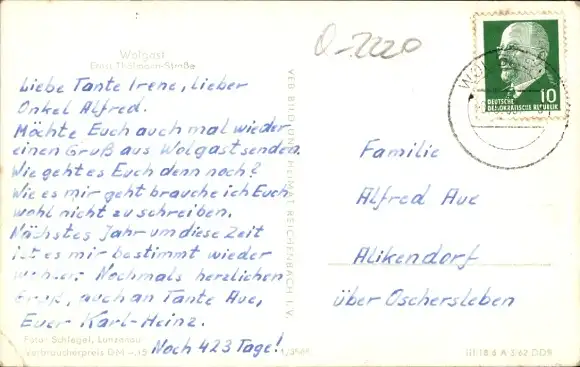 Wolgast
Ernst-Thälmann-Straße
Liebe Tante Irene, lieber
Onkel Alfred.
Möchte Euch auch mal wieder
einen Gruß aus Wolgast senden.
Wie geht es Euch denn noch?
Wie es mir geht brauche ich Euch
wohl nicht zu schreiben.
Nächstes Jahr um diese Zeit
ist es mir bestimmt wieder
wohler. Nochmals herzlichen
Gruß, auch an Tante Aue,
Euer Karl-Heinz.
Noch 423 Tage!
Foto: Schlegel, Lunzenau
Verbraucherpreis DM -,15
VEB BILD UND HEIMAT REICHENBACH I. V.
O-2220
DEUTSCHE
DEMOKRATISCHE REPUBLIK
10
Familie
Alfred Aue
Alikendorf
über Oschersleben
III/18/6 A 3/62 DDR